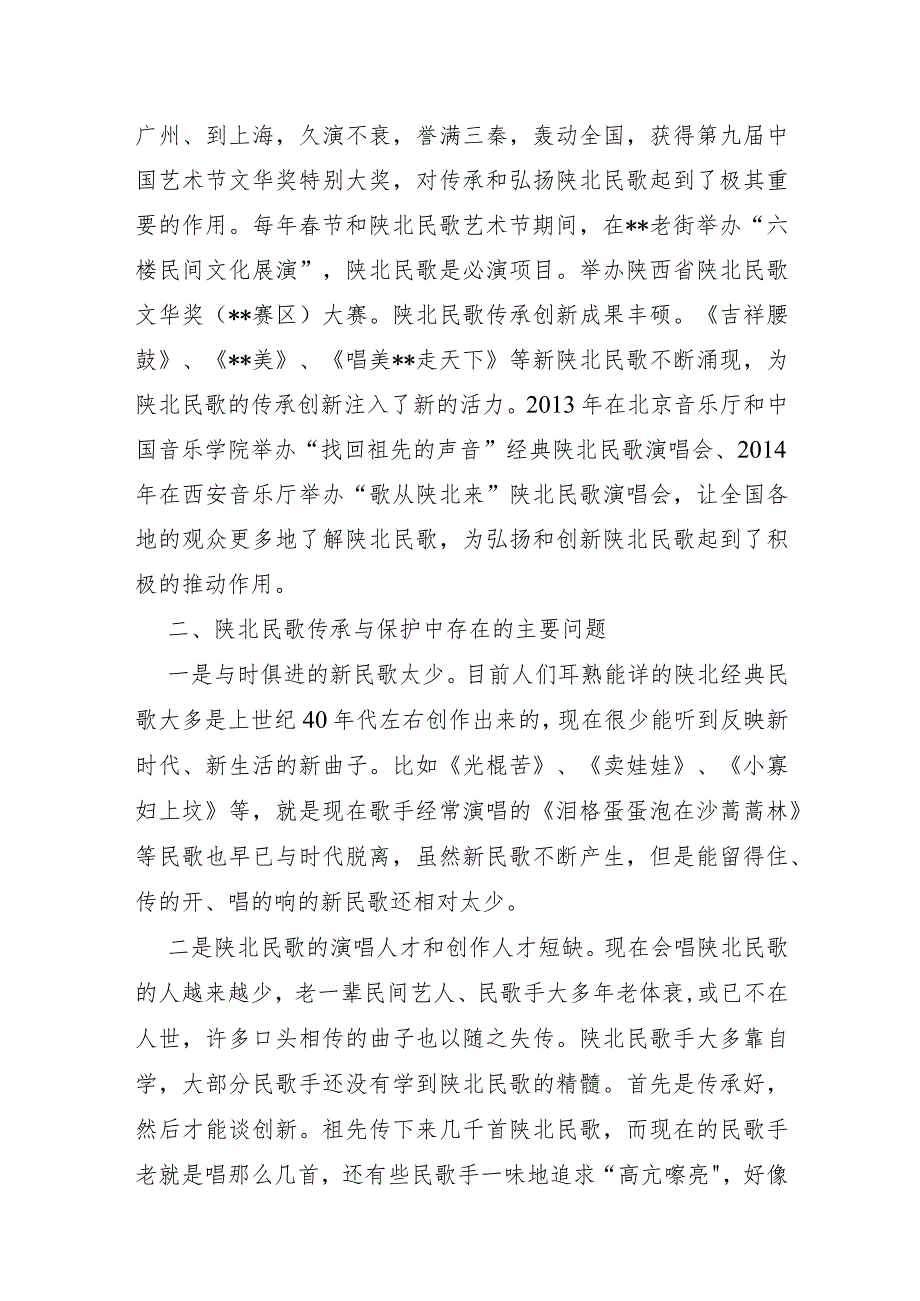 广州、到上海，久演不衰，誉满三秦，轰动全国，获得第九届中
国艺术节文华奖特别大奖，对传承和弘扬陕北民歌起到了极其重
要的作用。每年春节和陕北民歌艺术节期间，在**老街举办“六
楼民间文化展演”，陕北民歌是必演项目。举办陕西省陕北民歌
文华奖（**赛区）大赛。陕北民歌传承创新成果丰硕。《吉祥腰
鼓》、《**美》、《唱美**走天下》等新陕北民歌不断涌现，为
陕北民歌的传承创新注入了新的活力。2013年在北京音乐厅和中
国音乐学院举办“找回祖先的声音”经典陕北民歌演唱会、2014
年在西安音乐厅举办“歌从陕北来”陕北民歌演唱会，让全国各
地的观众更多地了解陕北民歌，为弘扬和创新陕北民歌起到了积
极的推动作用。
二、陕北民歌传承与保护中存在的主要问题
一是与时俱进的新民歌太少。目前人们耳熟能详的陕北经典民
歌大多是上世纪40年代左右创作出来的，现在很少能听到反映新
时代、新生活的新曲子。比如《光棍苦》、《卖娃娃》、《小寡
妇上坟》等，就是现在歌手经常演唱的《泪格蛋蛋泡在沙蒿蒿林》
等民歌也早已与时代脱离，虽然新民歌不断产生，但是能留得住、
传的开、唱的响的新民歌还相对太少。
二是陕北民歌的演唱人才和创作人才短缺。现在会唱陕北民歌
的人越来越少，老一辈民间艺人、民歌手大多年老体衰,或已不在
人世，许多口头相传的曲子也以随之失传。陕北民歌手大多靠自
学，大部分民歌手还没有学到陕北民歌的精髓。首先是传承好，
然后才能谈创新。祖先传下来几千首陕北民歌，而现在的民歌手
老就是唱那么几首，还有些民歌手一味地追求“高亢嘹亮"，好像